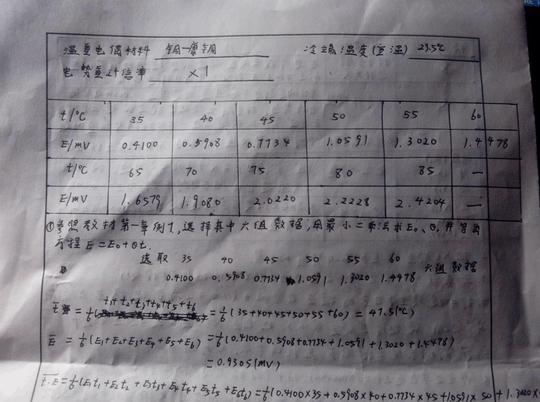 温差电偶材料 铜—康铜 冷端温度(室温) 23.5℃
电势差计倍率 ×1
t/℃ 35 40 45 50 55 60
E/mV 0.4100 0.5908 0.7734 1.0591 1.3020 1.4478
t/℃ 65 70 75 80 85 —
E/mV 1.6579 1.9080 2.0220 2.2228 2.4204 —
①参照教材第一章例7,选择其中六组数据,用最小二乘法求E₀、θ,并写出
方程E=E₀+θt.
选取 35 40 45 50 55 60
0.4100 0.5908 0.7734 1.0591 1.3020 1.4478 六组数据
t̄ = 1/6(t₁+t₂+t₃+t₄+t₅+t₆) = 1/6(35+40+45+50+55+60) = 47.5(℃)
Ē = 1/6(E₁+E₂+E₃+E₄+E₅+E₆) = 1/6(0.4100+0.5908+0.7734+1.0591+1.3020+1.4478)
= 0.9305(mV)
t·E = 1/6(E₁t₁+E₂t₂+E₃t₃+E₄t₄+E₅t₅+E₆t₆) = 1/6(0.4100×35+0.5908×40+0.7734×45+1.0591×50+1.3020×